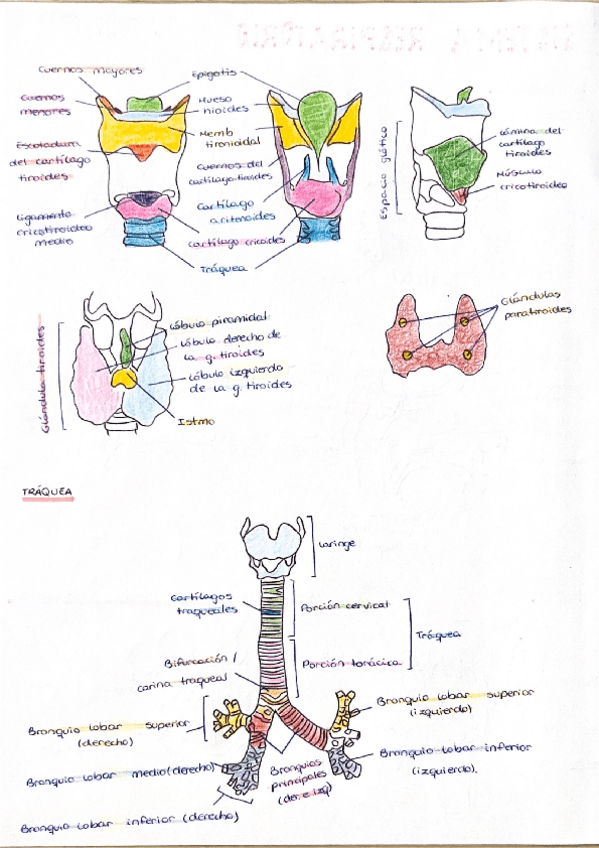 SISTEMA RESPIRATORIO
Cuernos mayores
Epiglotis
Cuernos
menores
Hueso
hioides
Escotadura
del cartílago
tiroides
Memb
tirohioidal
Cuernos del
cartílago tiroides
Cartílago
aritenoides
Ligamento
cricotiroideo
medio
Cartílago cricoides
Tráquea
Espacio glótico
Lámina del
cartílago
tiroides
Músculo
cricotiroideo
Glándula tiroides
Lóbulo piramidal
Lóbulo derecho de
la g. tiroides
Lóbulo izquierdo
de la g. tiroides
Istmo
Glándulas
paratiroides
TRÁQUEA
Laringe
Cartílagos
traqueales
Porción cervical
Tráquea
Bifurcación /
carina traqueal
Porción torácica
Bronquio lobar superior
(derecho)
Bronquio lobar superior
(izquierdo)
Bronquio lobar medio (derecho)
Bronquios
principales
(der. e izq)
Bronquio lobar inferior
(izquierdo).
Bronquio lobar inferior (derecho)